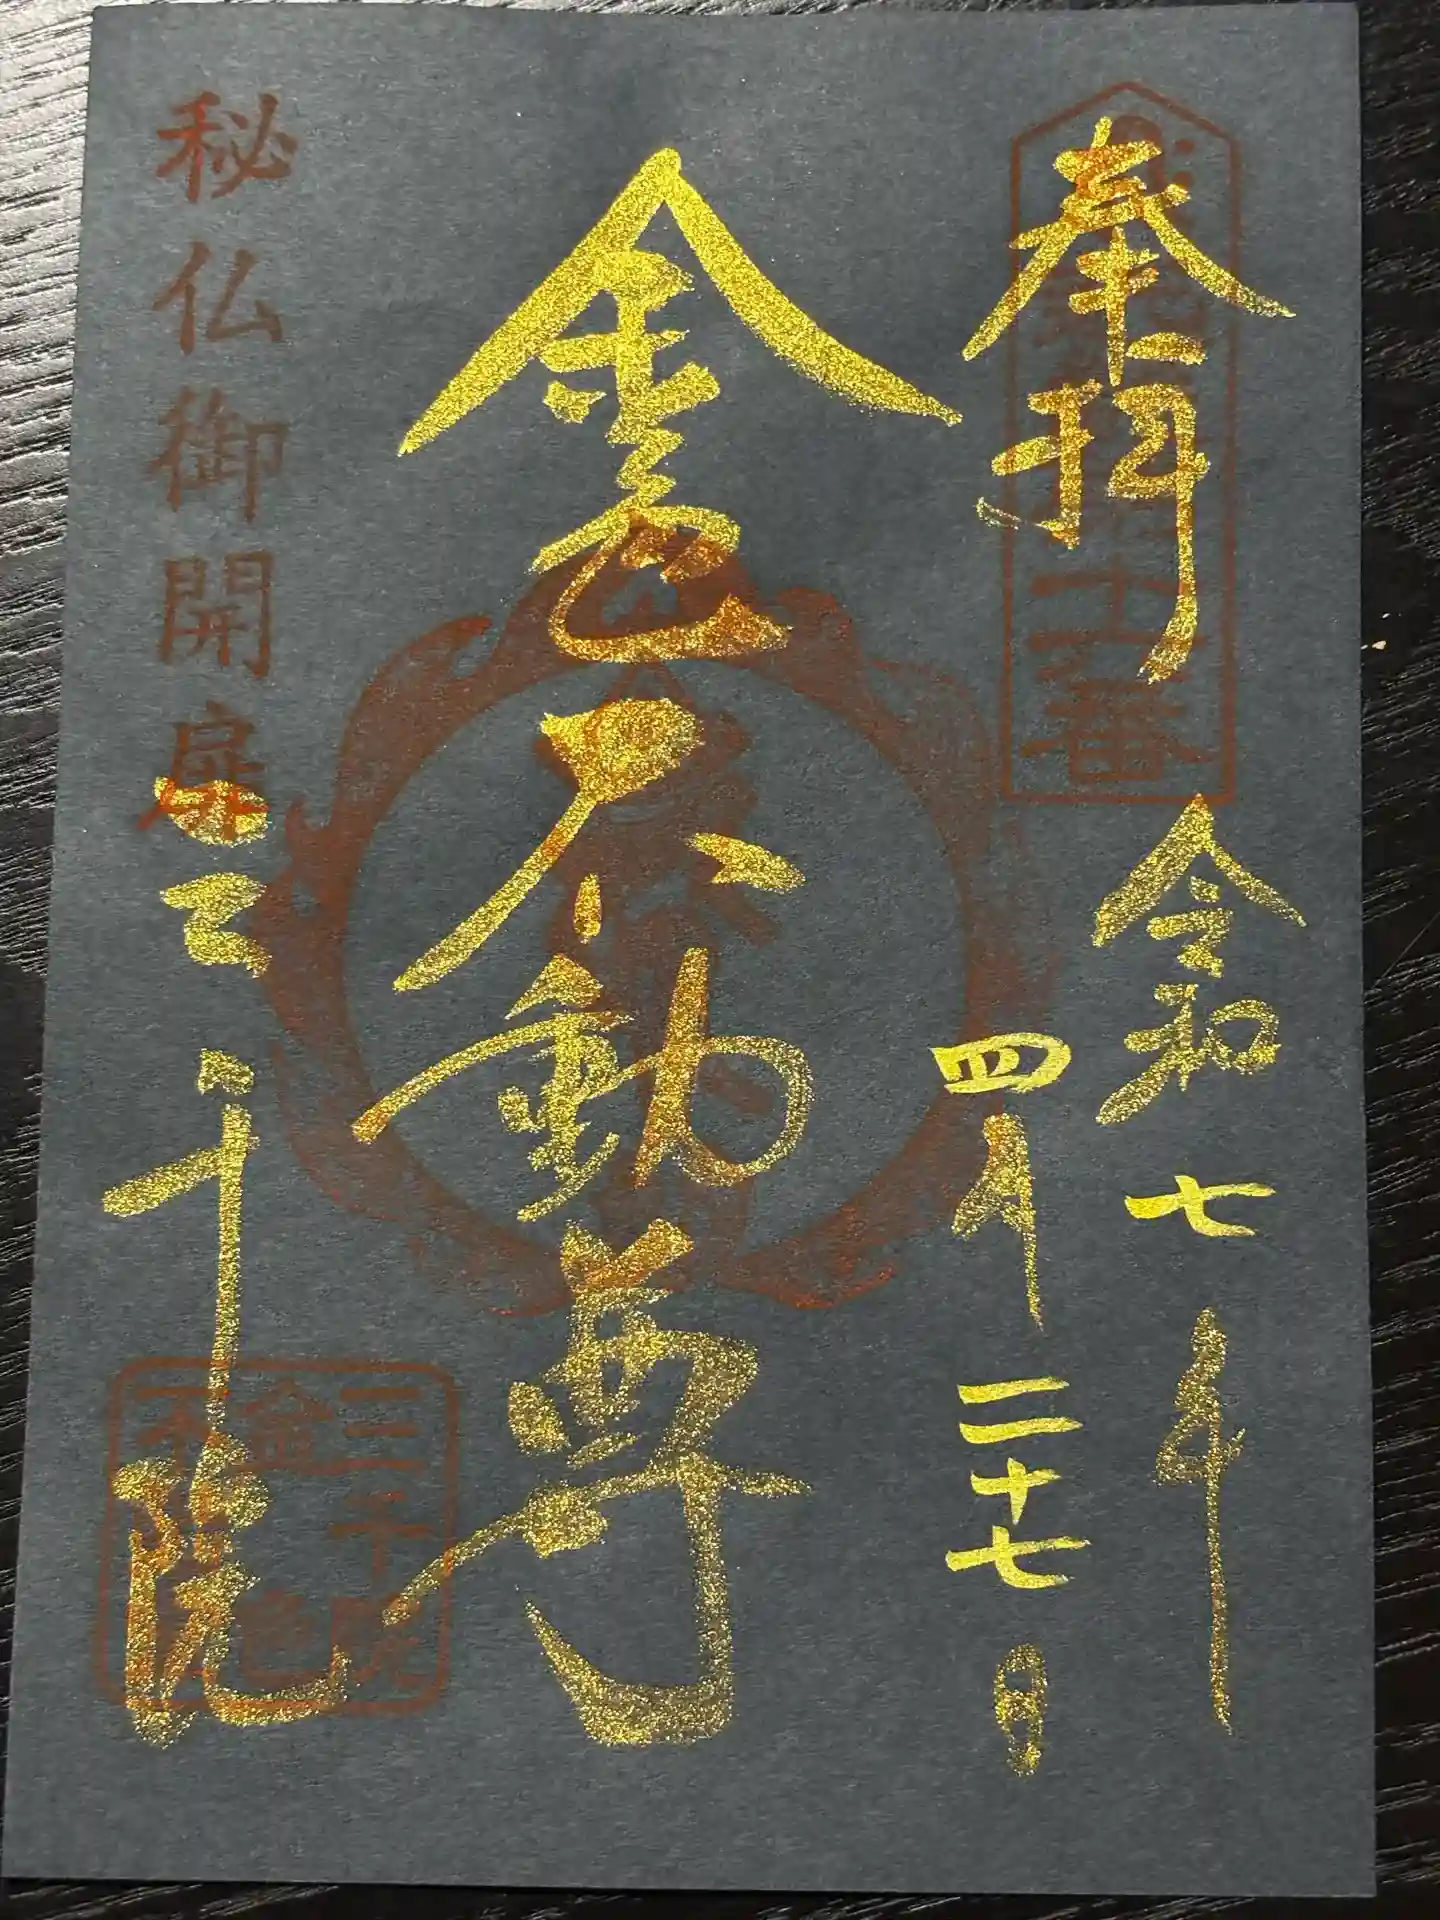 奉拝
令和七年
四月二十七日
金色不動尊
秘仏御開扉
三千院
十五番
三千院
金色
不